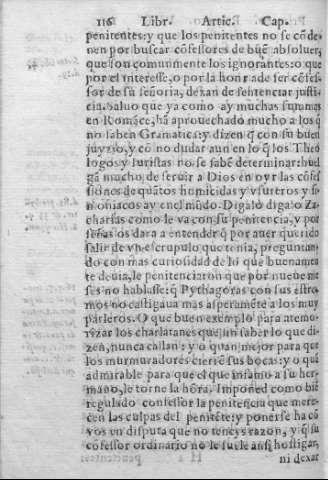 116 Libr. Artic. Cap.
penitentes: y que los penitentes no se cõde-
nen por buscar cõfessores de buẽ absoluer,
que son comunmente los ignorantes: o que
por el interesse, o por la honrade ser cõfes-
sor de su señoria, dexan de sentenciar justi-
cia. Saluo que ya como ay muchas summas
en Romãce, hã aprouechado mucho a los q̃
no saben Gramatica: y dizen q̃ con su buen
juyzio, y cõ no dudar aun en lo q̃ los Theo
logos y Iuristas no se sabẽ determinar: huel
gã mucho, de seruir a Dios en oyr las cõfes
siones de quãtos homicidas y vsureros y si-
moniacos ay en el mũdo. Digalo digalo Za-
charias como le va con su penitencia, y por
señas os dara a entender q̃ por auer querido
salir de vn escrupulo que tenia, preguntan-
do con mas curiosidad de lo que buenamen
te deuia, le penitenciaron que por nueue me
ses no hablasse: q̃ Pythagoras con sus estre-
mos no castigaua mas asperamẽte a los muy
parleros. O que buen exemplo para atemo-
rizar los charlatanes que sin saber lo que di-
zen, nunca callan: y o quan mejor para que
los murmuradores cierrẽ sus bocas: y o que
admirable para que el que infamo a su her-
mano, le torne la hõra. Imponed como biẽ
regulado confessor la penitencia que mere-
cen las culpas del penitẽte: y ponerse ha cõ
vos en disputa que no teneys razon, y q̃ su
cõfessor ordinario no le suele ansi hostigar,
ni dexar